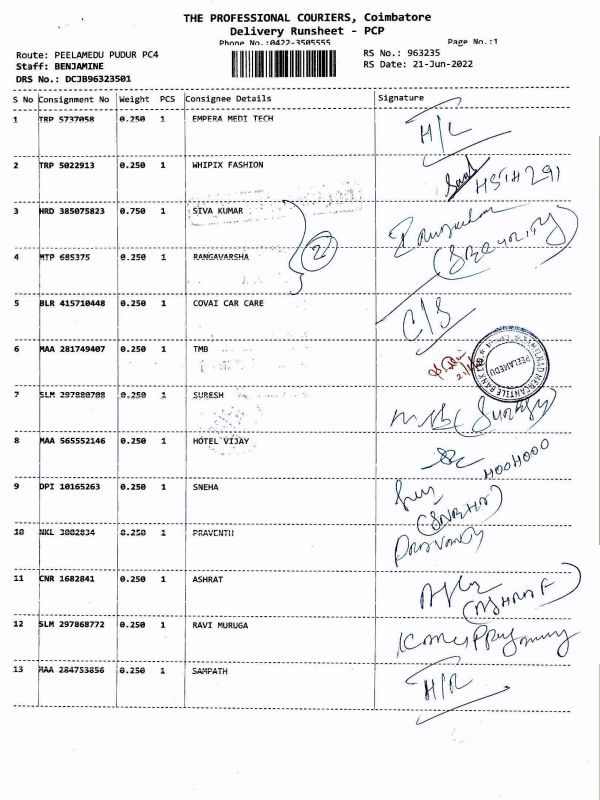 THE PROFESSIONAL COURIERS, Coimbatore
Delivery Runsheet - PCP
Phone No.:0422-3505555 Page No.:1
Route: PEELAMEDU PUDUR PC4 RS No.: 963235
Staff: BENJAMINE RS Date: 21-Jun-2022
DRS No.: DCJB96323501
S No Consignment No Weight PCS Consignee Details Signature
1 TRP 5737058 0.250 1 EMPERA MEDI TECH
2 TRP 5022913 0.250 1 WHIPIX FASHION
3 HRD 385075823 0.750 1 SIVA KUMAR
2
4 MTP 685375 0.250 1 RANGAVARSHA
(SECURITY)
5 BLR 415710448 0.250 1 COVAI CAR CARE
C/S
6 MAA 281749407 0.250 1 TMB
TAMILNAD MERCANTILE BANK LTD
PEELAMEDU
7 SLM 297880708 0.250 1 SURESH
8 MAA 565552146 0.250 1 HOTEL VIJAY
9 DPI 10165263 0.250 1 SNEHA
(SNEHA)
10 NKL 3002834 0.250 1 PRAVENTH
11 CNR 1682841 0.250 1 ASHRAT
12 SLM 297868772 0.250 1 RAVI MURUGA
13 MAA 284753856 0.250 1 SAMPATH
H/R